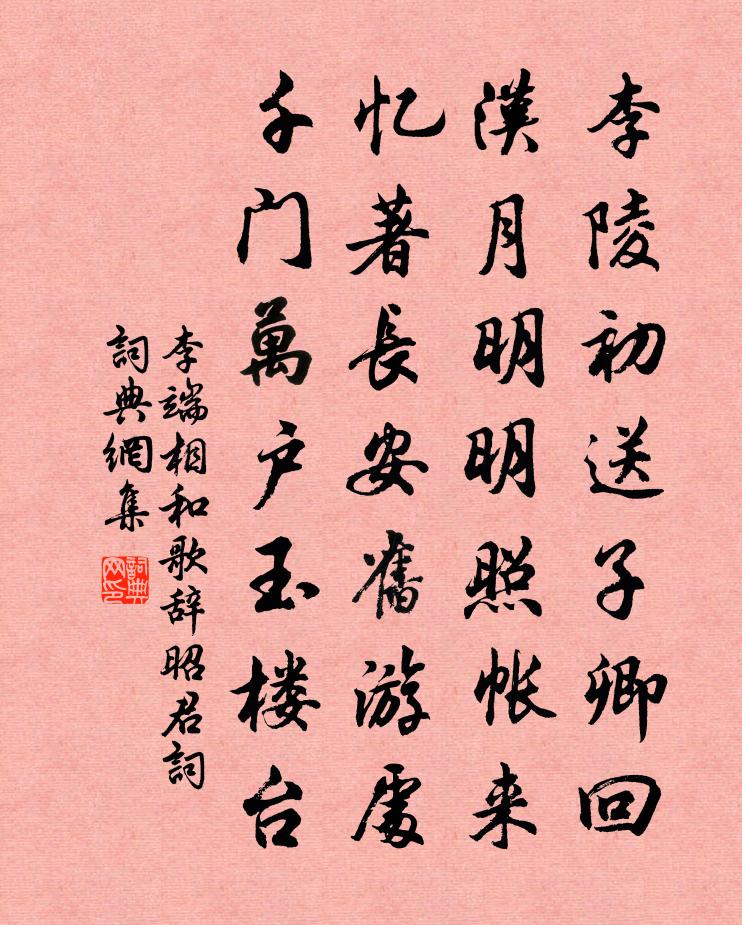 李陵初送子卿回
漢月明明照帐来
忆著長安舊游處
千门萬户玉楼台
李端相和歌辞昭君詞
詞典網集
詞典网印